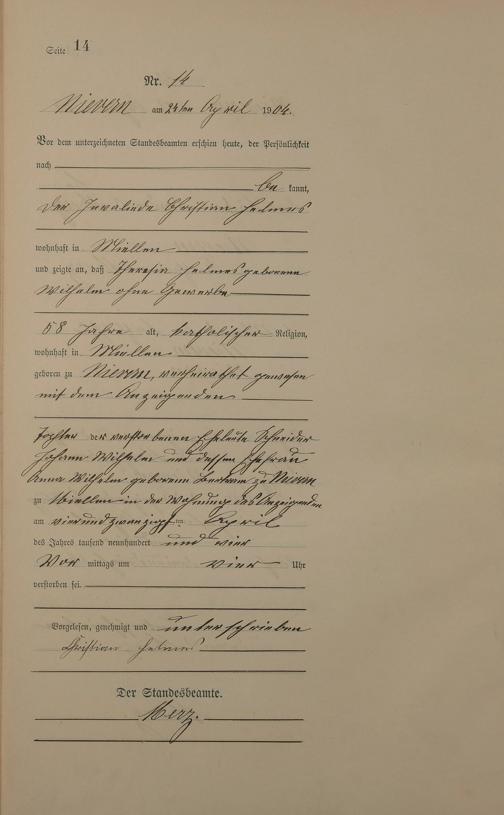 Seite 14
Nr. 14
Nievern am 24ten April 1904.
Vor dem unterzeichneten Standesbeamten erschien heute, der Persönlichkeit
nach
be kannt,
der Invaliede Christian Helmes
wohnhaft in Miellen
und zeigte an, daß Theresia Helmes geborene
Wilhelm ohne Gewerbe
58 Jahre alt, katholischer Religion,
wohnhaft in Miellen
geboren zu Nievern, verheirathet gewesen
mit dem Anzeigenden
Tochter der verstorbenen Eheleute Schneider
Johann Wilhelm und dessen Ehefrau
Anna Wilhelm geborene Bertram zu Nievern
zu Miellen in der Wohnung des Anzeigenden
am vierundzwanzigsten April
des Jahres tausend neunhundert und vier
Vor mittags um vier Uhr
verstorben sei.
Vorgelesen, genehmigt und unterschrieben
Christian Helmes
Der Standesbeamte.
Merz.